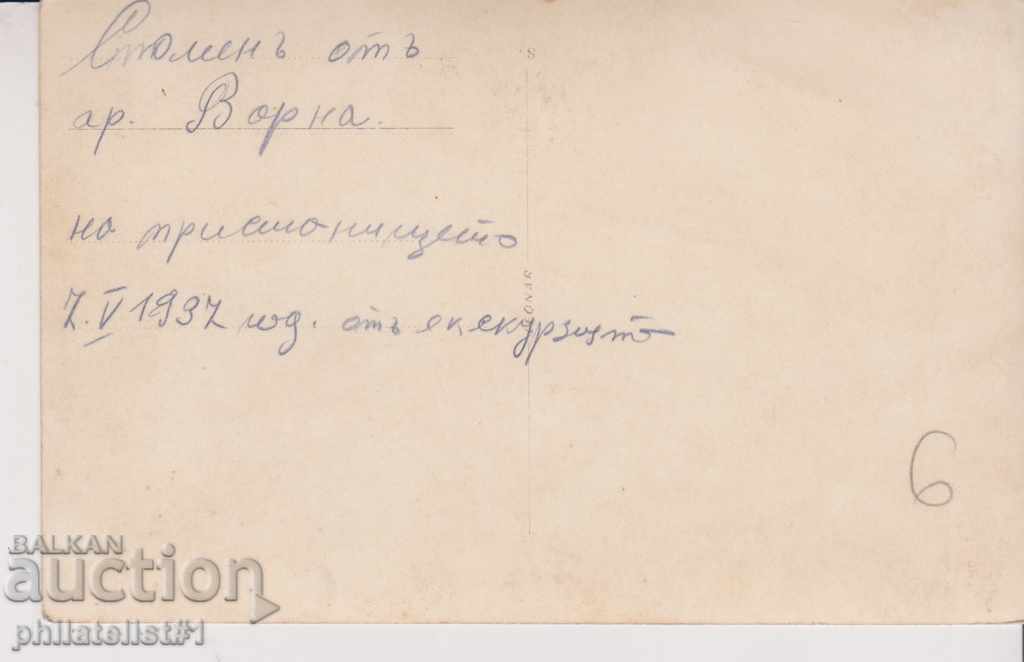 Споменъ отъ
гр. Варна.
на пристанището
7.V 1937 год. отъ екскурзията
6
BALKAN
auction
philatelist#1